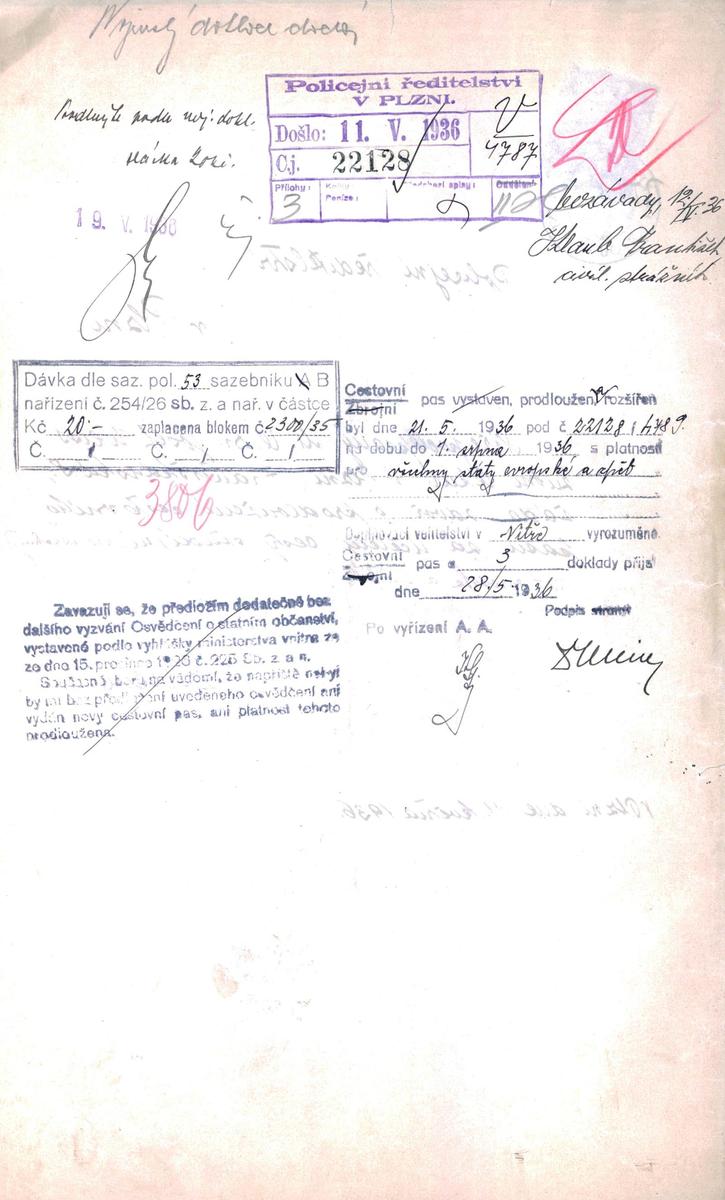 Policejní ředitelství
V PLZNI.
Došlo: 11. V. 1936
V
4787
C.j. 22128
Přílohy:
3
Peníze:
Oddělení:
podle nej. dokl.
19. V. 1936
bezávady, 12/IV. 36
František
civil. strážník
Dávka dle saz. pol. 53 sazebníku A B
nařízení č. 254/26 sb. z. a nař. v částce
Kč 20.- zaplacena blokem č 2300/35
Č. / Č. / Č. /
3806
Cestovní
Zbrojní
pas vystaven, prodloužen, rozšířen
byl dne 21. 5. 1936 pod č 22128 / 4789.
na dobu do 1. srpna 1936 s platností
pro všechny státy evropské a zpět
Doplňovací velitelství v Nitře vyrozuměno.
Cestovní
Zbrojní
pas a 3 doklady přijal
dne 28/5 1936
Podpis strany
Po vyřízení A. A.
Zavazuji se, že předložím dodatečně bez
dalšího vyzvání Osvědčení o státním občanství,
vystavené podle vyhlášky ministerstva vnitra ze
ze dne 15. prosince č. 225 Sb. z. a n.
Současně beru na vědomí, že napříště nebyl
by mi bez předložení uvedeného osvědčení ani
vydán nový cestovní pas, ani platnost tohoto
prodloužena.